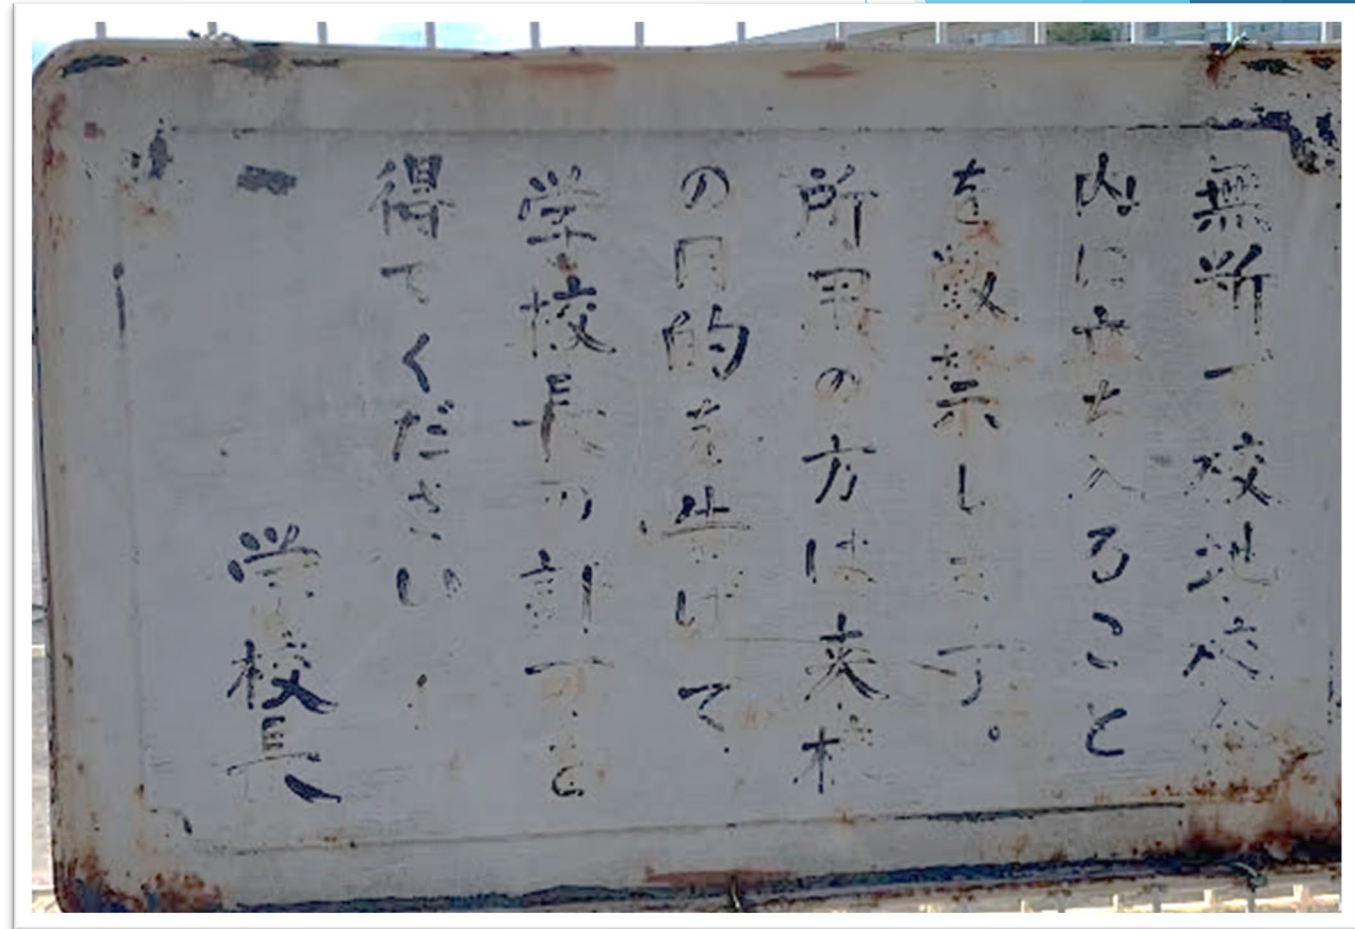 無断で校地校舎
内に立ち入ること
を厳禁します。
所用の方は来校
の目的を告げて
学校長の許可を
得てください
学校長